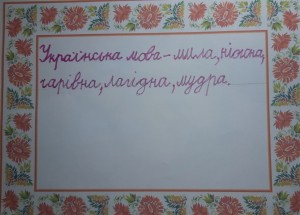 Українська мова – мила, ніжна,
чарівна, лагідна, мудра.